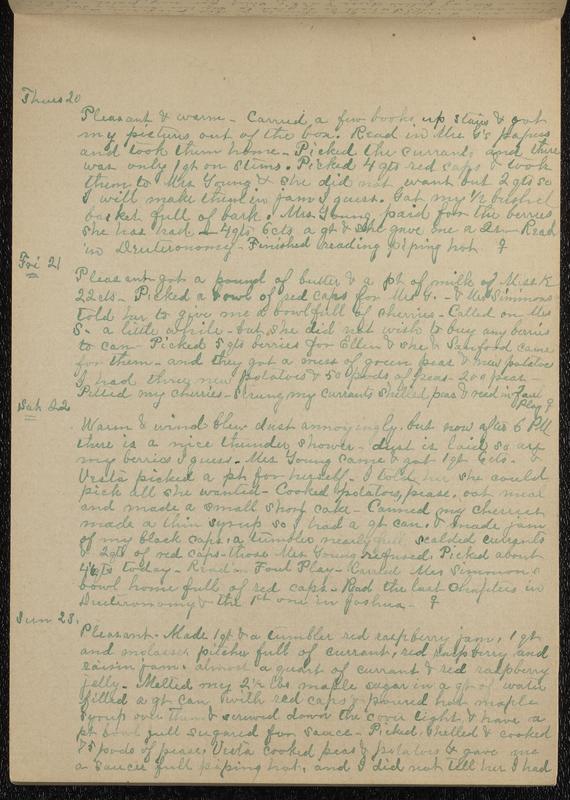 Thurs 20
Pleasant & warm - Carried a few books up stairs & got
my picture out of the box. Read in Mrs G's papers
and took them home - Picked the currants and there
was only 1 qt on stems. Picked 4 qts red caps & took
them to Mrs Young & she did not want but 2 qts so
I will make them in jam I guess. Got my 1/2 bushel
basket full of bark. Mrs Young paid for the berries
she has had 4 qts 6 cts a qt & she gave me a
in Deuteronomy - Finished reading piping hot
Fri 21
Pleasant got a pound of butter & a pt of milk of Miss K
22 cts - Picked a bowl of red caps for Mrs G. - & Mrs Simmons
told her to give me a bowl full of cherries - Called on Mrs
S - a little while - but she did not wish to buy any berries
to can - Picked 5 qts berries for Ellen & she & Sanford came
for them - and they got a mess of green peas & new potatoes
I had three new potatoes & 50 pods of peas - 200 peas -
Pitted my cherries - Strung my currants shelled peas & read in Foul
Play
Sat 22
Warm & wind blew dust annoyingly. but now after 6 PM
there is a nice thunder shower - dust is laid so are
my berries I guess. Mrs Young came & got 1 qt 6 cts - &
Vesta picked a pt for herself - I told her she could
pick all she wanted - Cooked potatoes, pease, oat meal
and made a small short cake - Canned my cherries
made a thin syrup so I had a qt can. & made jam
of my black caps, a tumbler nearly full scalded currants
& 2 qts of red caps - those Mrs Young refused. Picked about
4 qts today - Read in Foul Play - Carried Mrs Simmon's
bowl home full of red caps - Read the last chapters in
Deuteronomy & the 1st one in Joshua -
Sun 23.
Pleasant - Made 1 qt & a tumbler red raspberry jam, 1 qt
and molasses pitcher full of currant, red raspberry and
raisin jam. almost a quart of currant & red raspberry
jelly - Melted my 2 1/2 lbs maple sugar in a qt of water
filled a qt can with red caps & poured hot maple
syrup over them & screwed down the cover tight & have a
pt bowl full sugared for sauce - Picked, shelled & cooked
75 pods of pease, Vesta cooked peas & potatoes & gave me
a saucer full piping hot, and I did not tell her I had